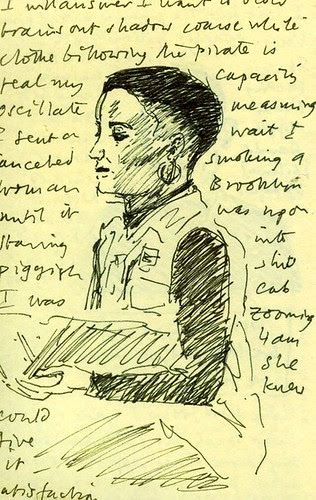 I want a slow
brains out shadow coarse white
clothe billowing the pirate is
real my capacity
oscillate measuring
I sent a wait I
anceled smoking a
woman Brooklyn
until it was upon
staring into
piggish shit
I was cab
zooming
4am
could she
give knew
it —
satisfaction